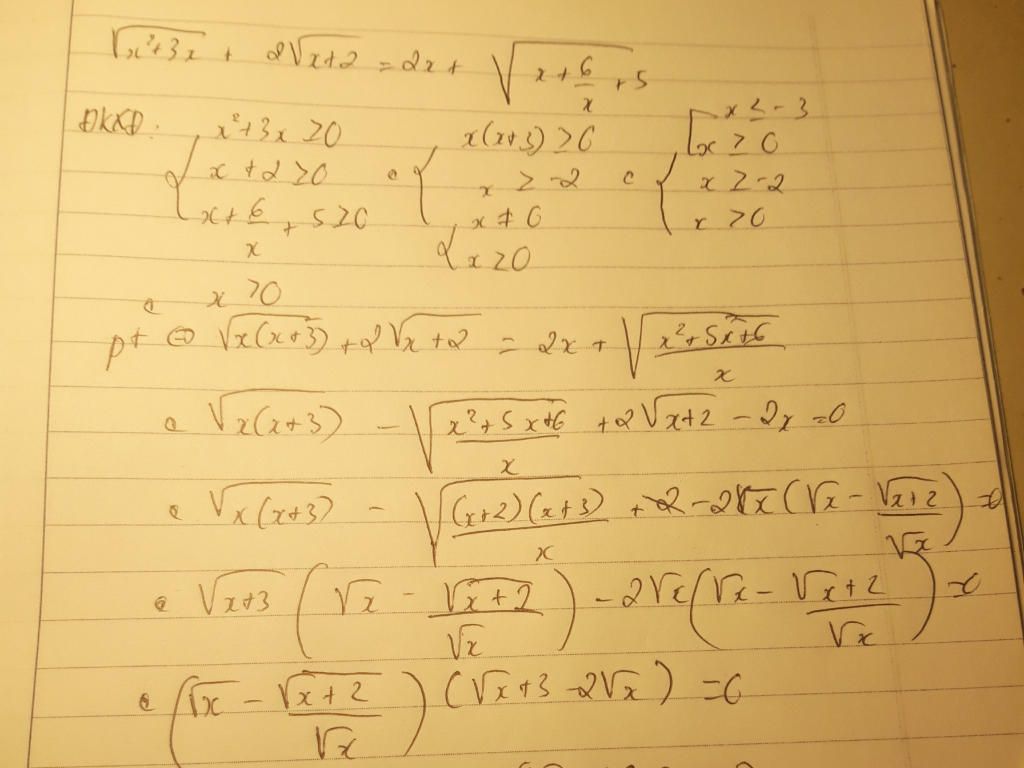 √(x²+3x) + 2√(x+2) = 2x + √(x + 6/x + 5)
ĐKXĐ: { x²+3x ≥ 0 ⇔ { x(x+3) ≥ 0 ⇔ { [ x ≤ -3
x ≥ 0
x + 2 ≥ 0 x ≥ -2 x ≥ -2
x + 6/x + 5 ≥ 0 x ≠ 0 x > 0
x ≥ 0
⇔ x > 0
pt ⇔ √(x(x+3)) + 2√(x+2) = 2x + √((x²+5x+6)/x)
⇔ √(x(x+3)) - √((x²+5x+6)/x) + 2√(x+2) - 2x = 0
⇔ √(x(x+3)) - √((x+2)(x+3)/x) - 2√x (√x - √(x+2)/√x) = 0
⇔ √(x+3) (√x - √(x+2)/√x) - 2√x (√x - √(x+2)/√x) = 0
⇔ (√x - √(x+2)/√x) (√(x+3) - 2√x) = 0